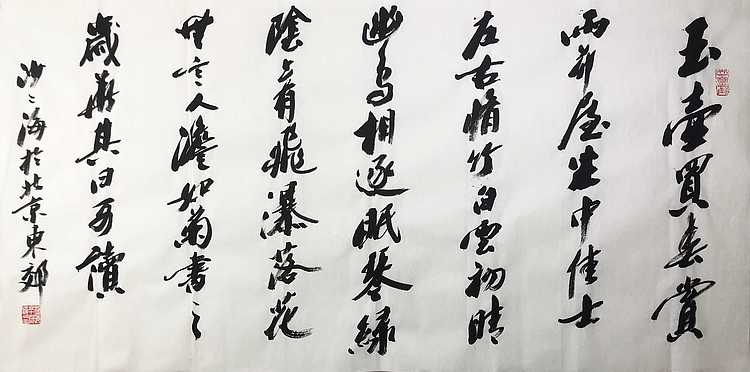 玉壺買春賞
雨茅屋坐中佳士
左右脩竹白雲初晴
幽鳥相逐眠琴綠
陰上有飛瀑落花
無言人澹如菊書之
歲華其曰可讀
沙〻海於北京東郊